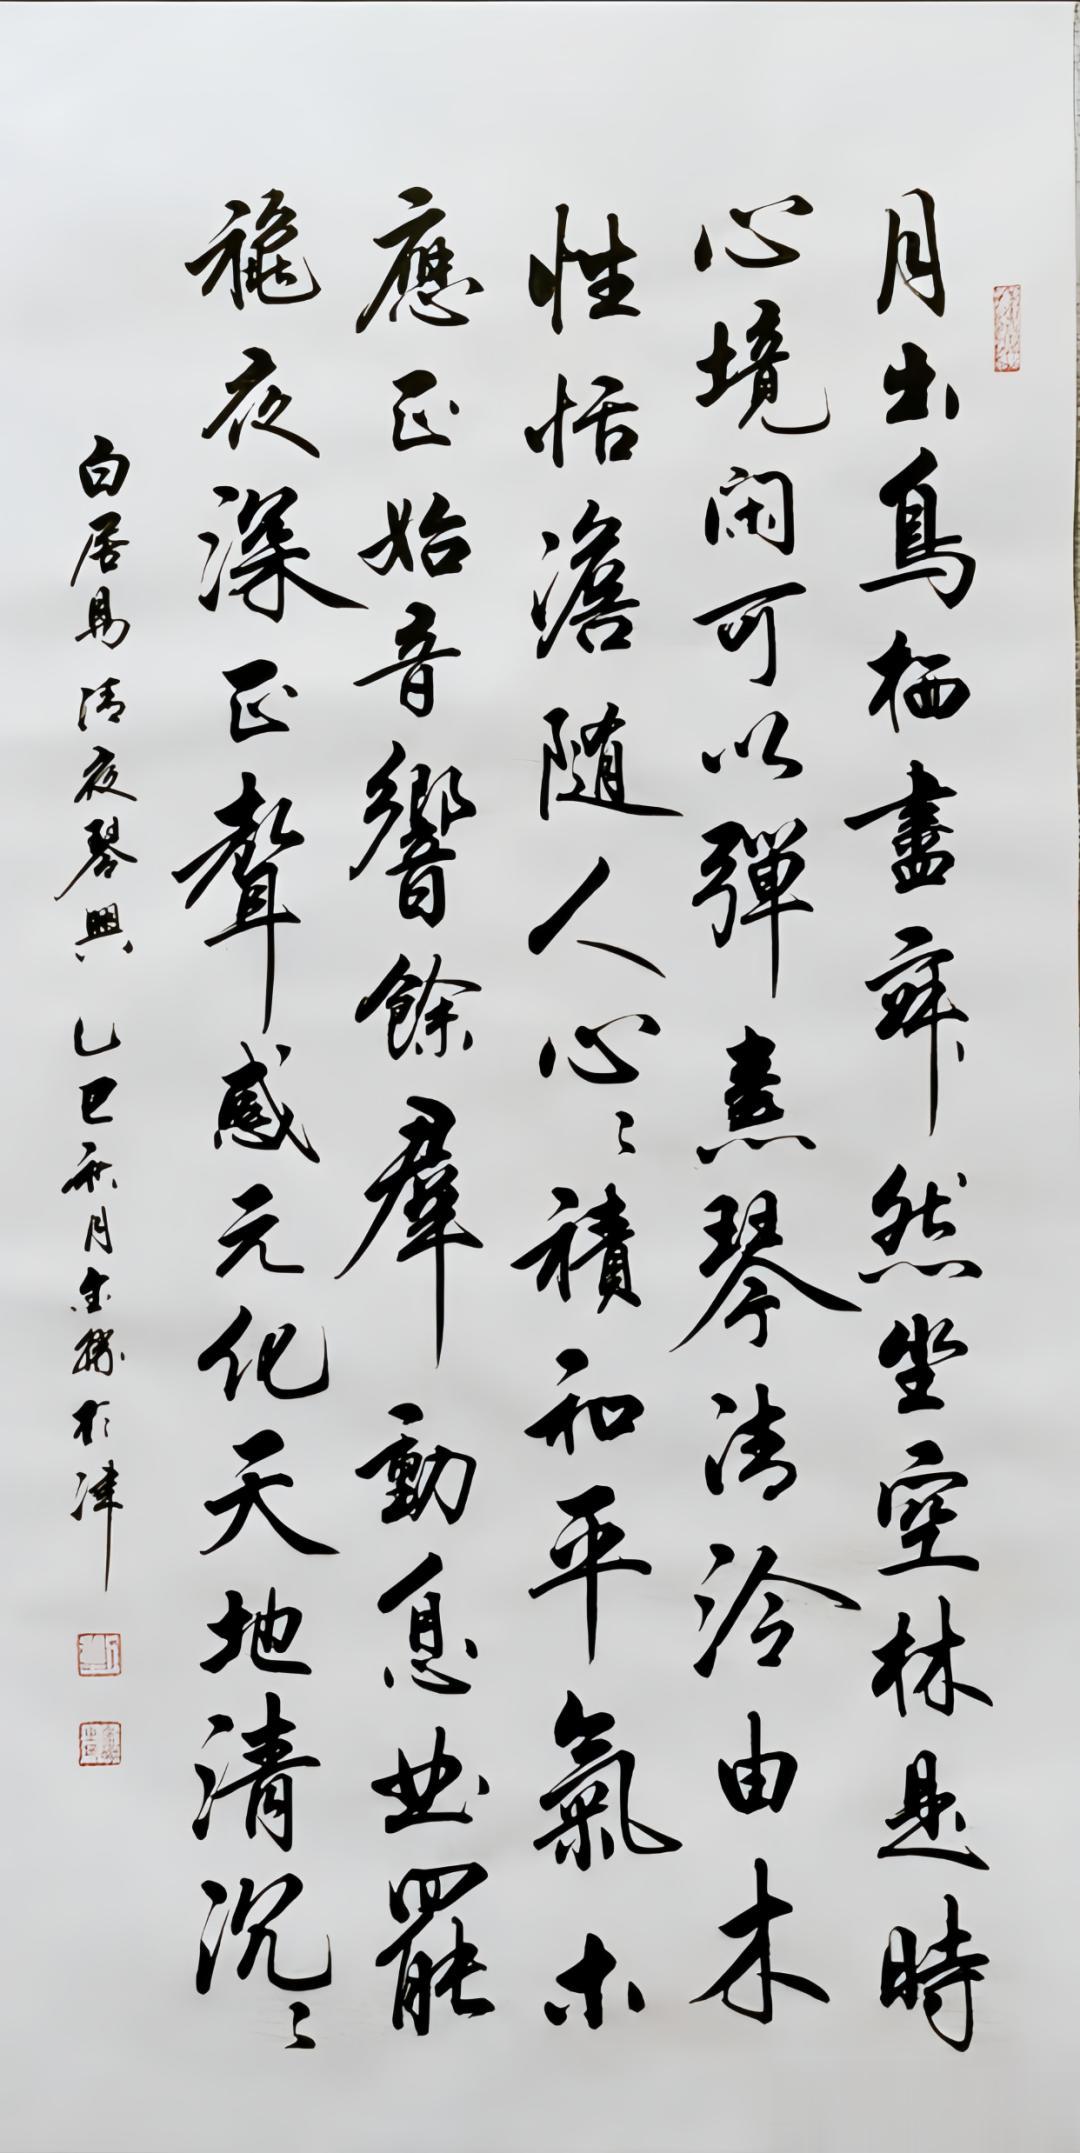 月出鳥栖盡寂然坐空林是時
心境閑可以彈素琴清泠由木
性恬澹随人心〻積和平氣木
應正始音響餘羣動息曲罷
穐夜深正聲感元化天地清沉〻
白居易清夜琴興 乙巳秋月於津